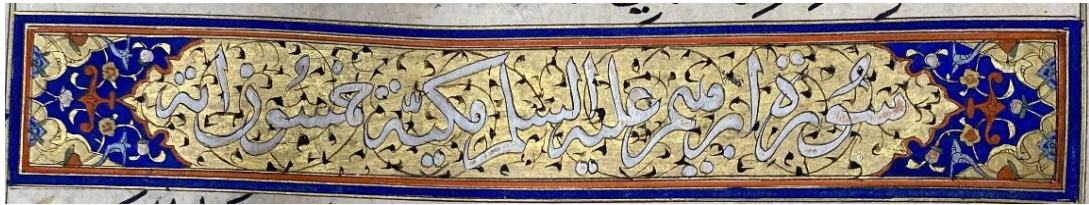 سورة ابرهيم عليه السلم مكية خمسون اية